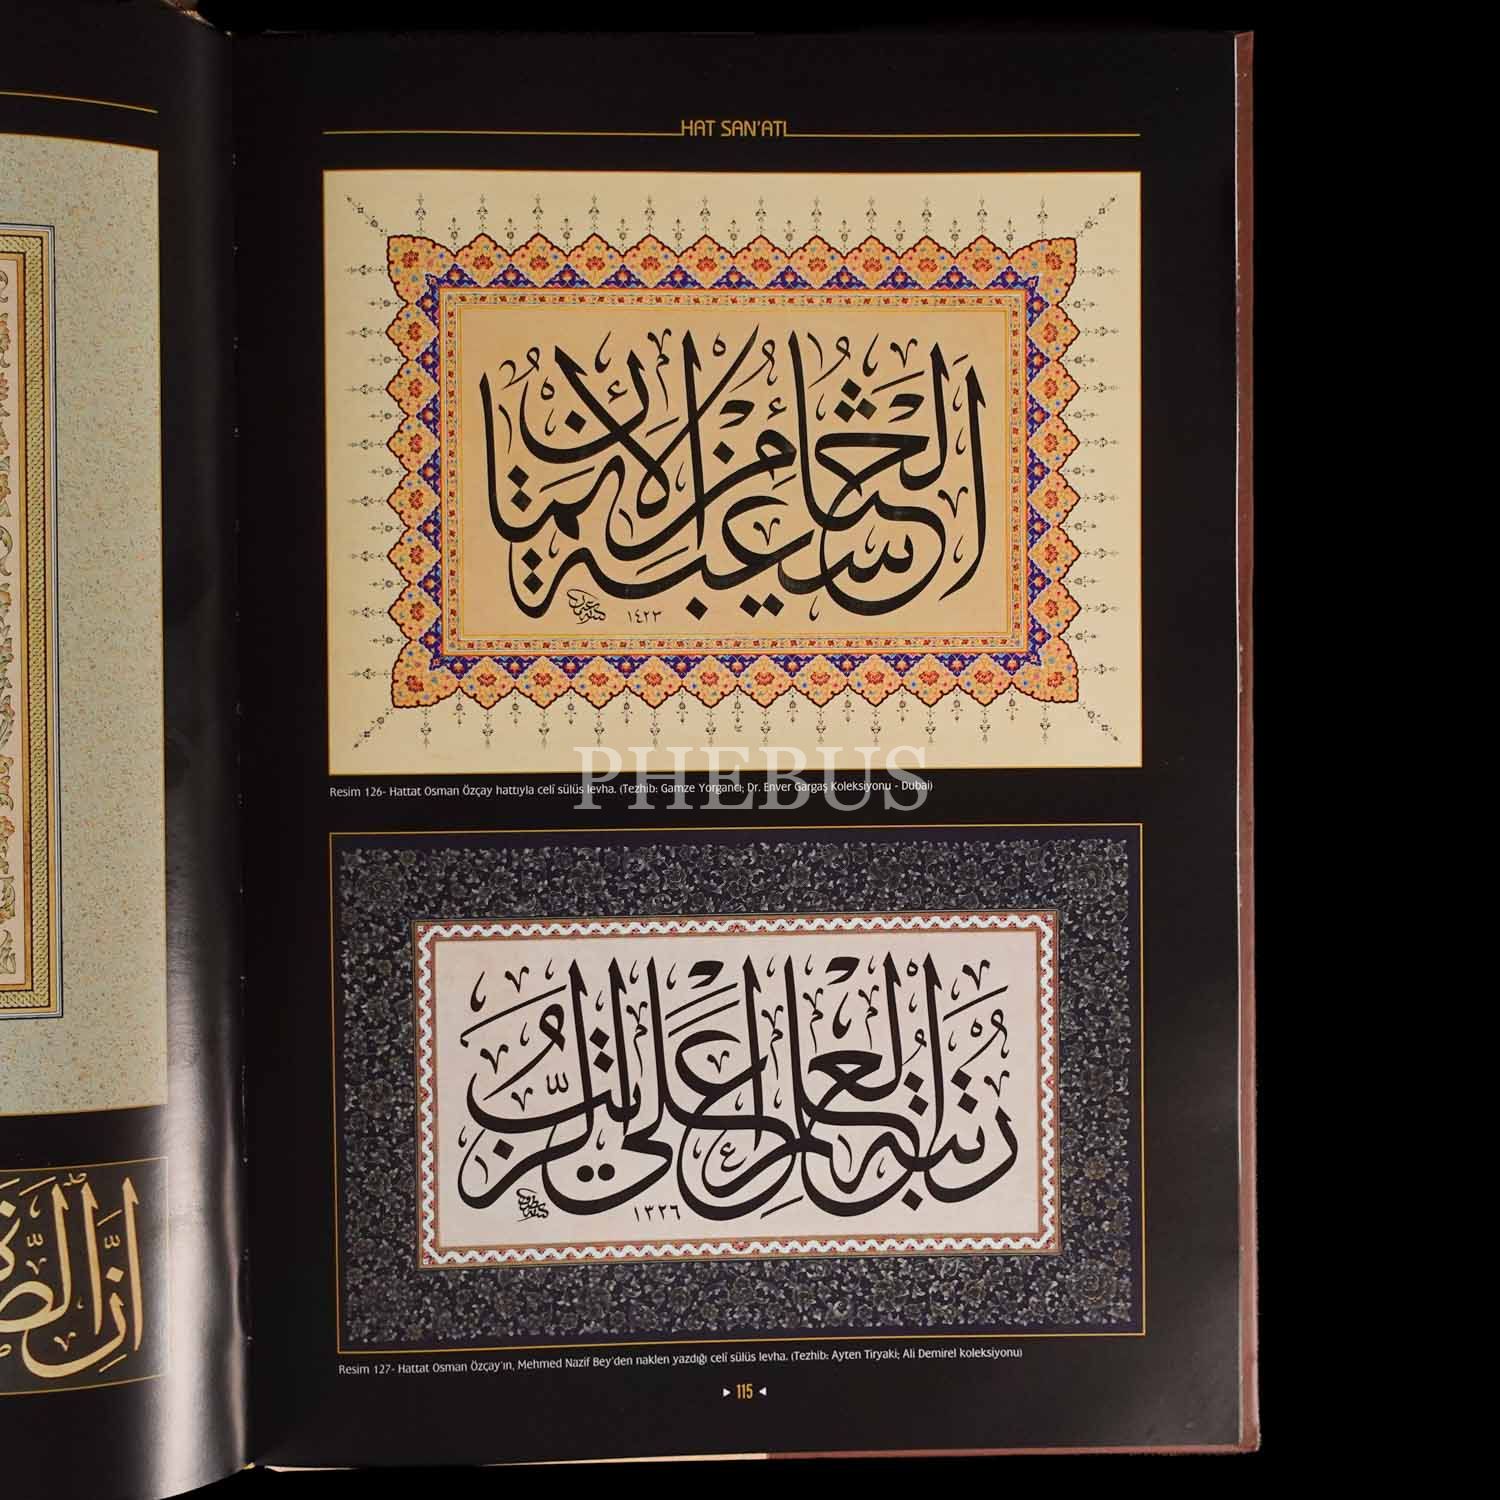 HAT SAN'ATI
الحياء شعبة من الإيمان
١٤٢٣
Resim 126- Hattat Osman Özçay hattıyla celî sülüs levha. (Tezhib: Gamze Yorgancı; Dr. Enver Gargaş Koleksiyonu - Dubai)
PHEBUS
رتبة العلم أعلى الرتب
١٣٢٦
Resim 127- Hattat Osman Özçay'ın, Mehmed Nazif Bey'den naklen yazdığı celî sülüs levha. (Tezhib: Ayten Tiryaki; Ali Demirel koleksiyonu)
115